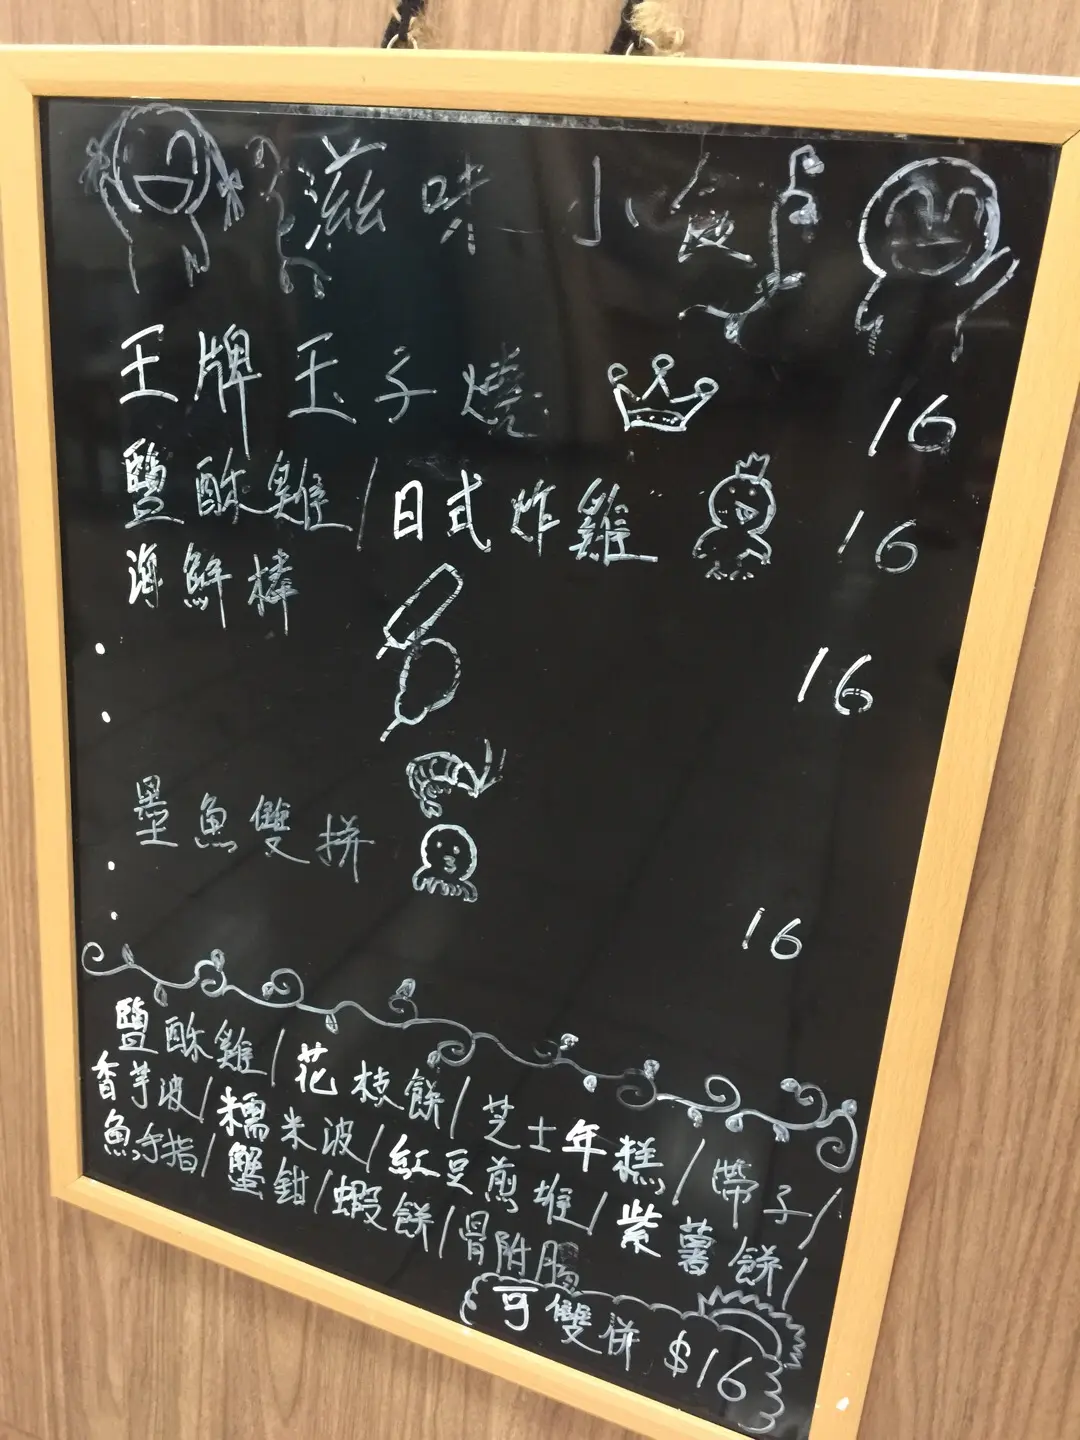 滋味小食
王牌玉子燒 16
鹽酥雞/日式炸雞 16
海鮮棒 16
墨魚雙拼 16
鹽酥雞/花枝餅/芝士年糕/帶子/
香芋波/糯米波/紅豆煎堆/紫薯餅/
魚手指/蟹鉗/蝦餅/骨附腸
可雙併 $16